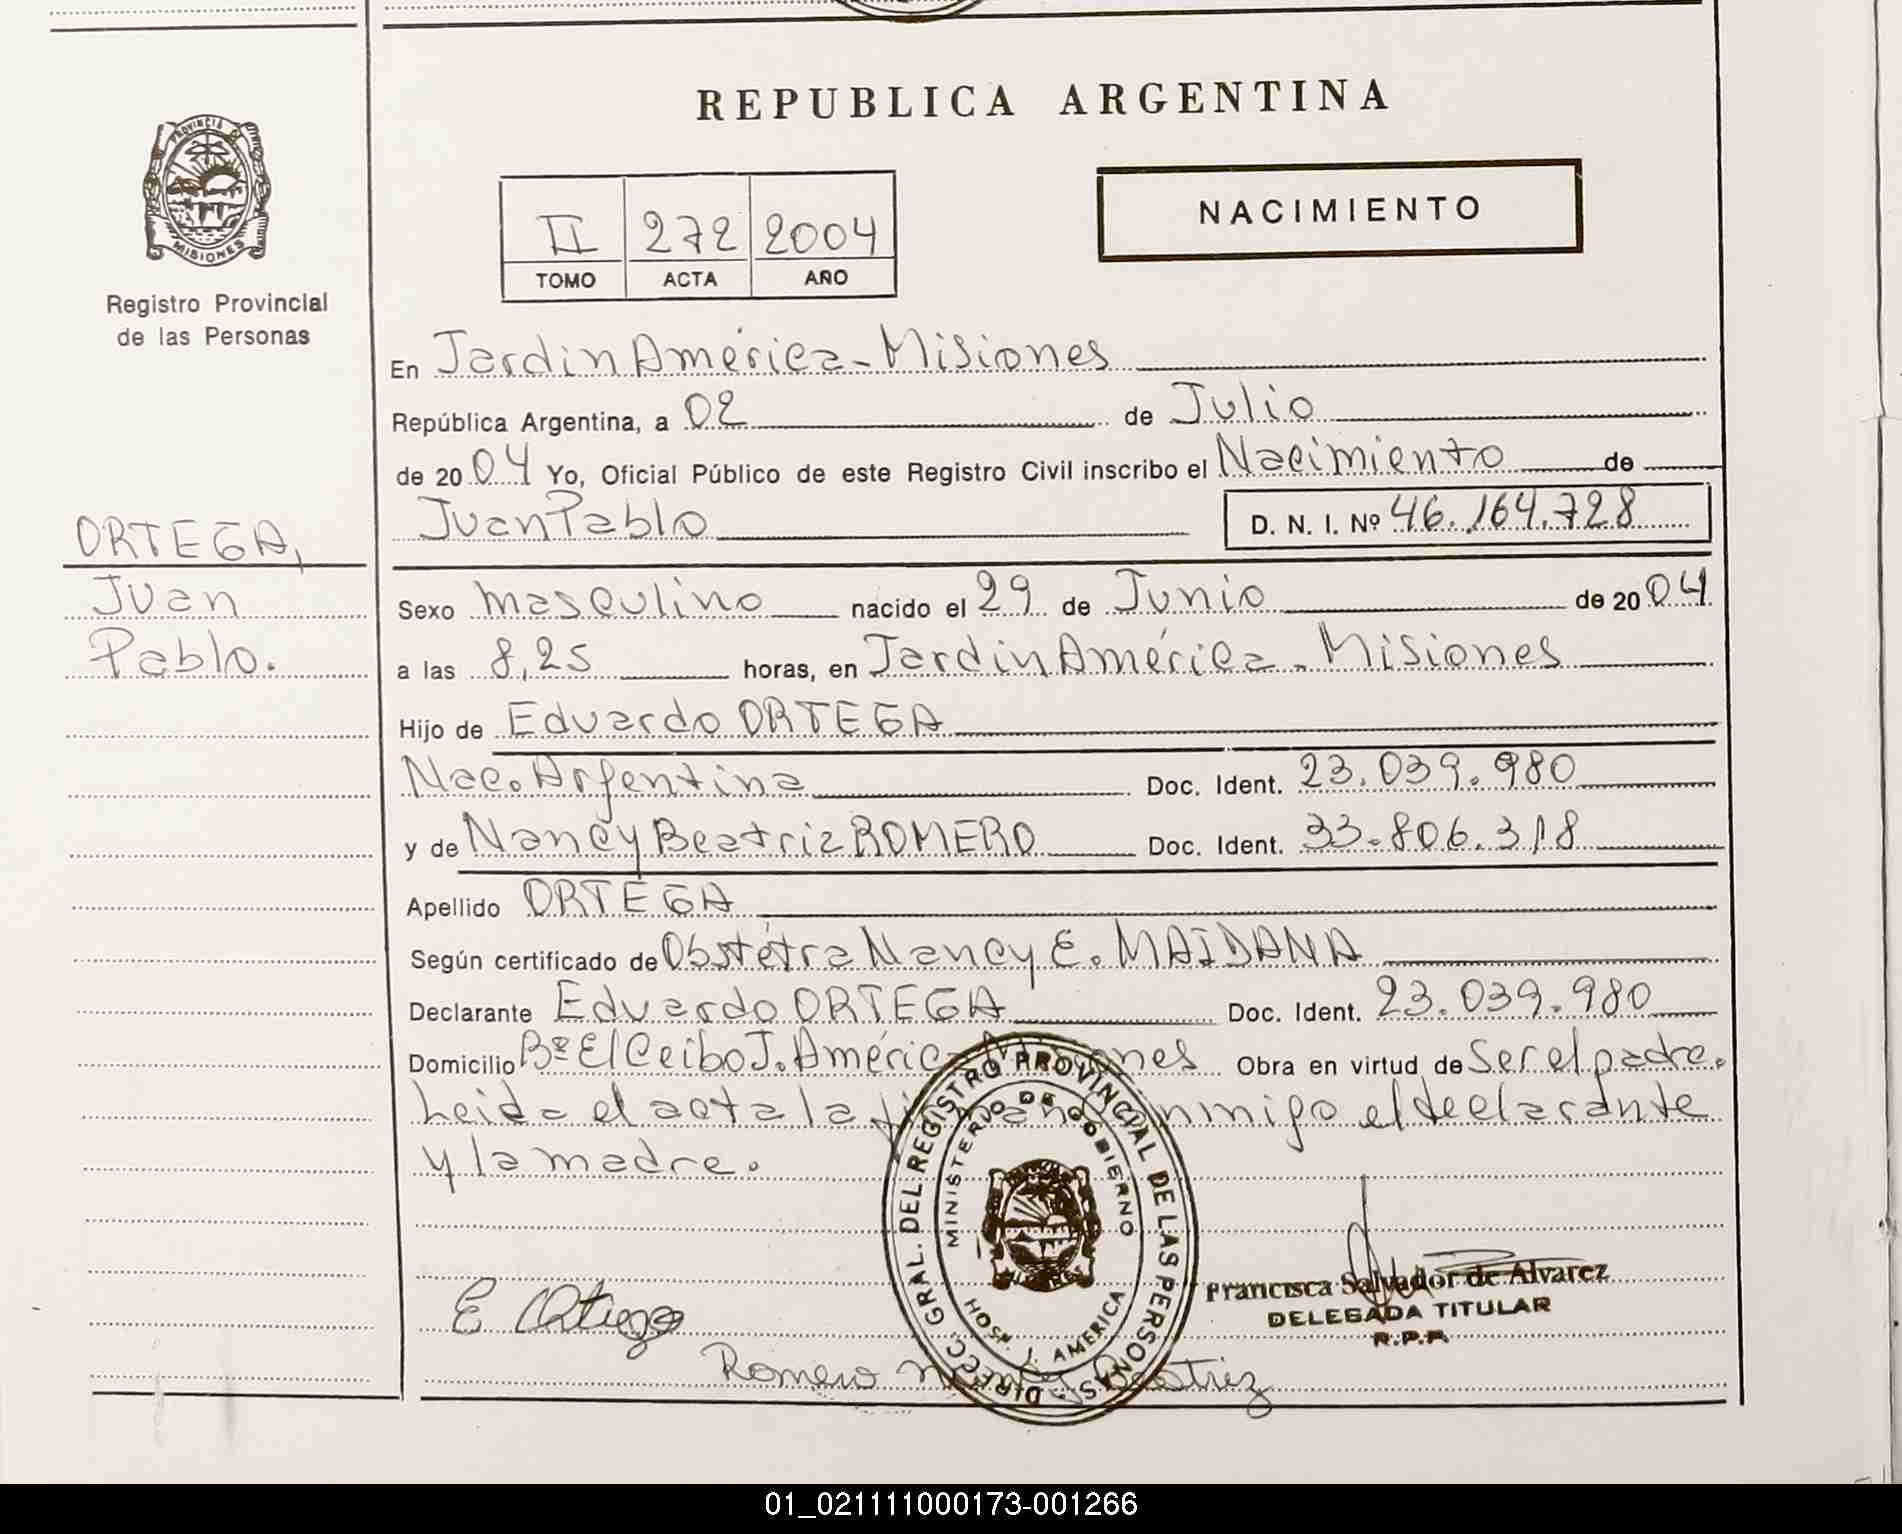 REPUBLICA ARGENTINA
PROVINCIA DE
MISIONES
Registro Provincial
de las Personas
NACIMIENTO
II 272 2004
TOMO ACTA AÑO
En Jardin América - Misiones
República Argentina, a 02 de Julio
de 2004 Yo, Oficial Público de este Registro Civil inscribo el Nacimiento de
Juan Pablo D. N. I. Nº 46.164.728
ORTEGA,
Juan
Pablo.
Sexo masculino nacido el 29 de Junio de 2004
a las 8,25 horas, en Jardin América - Misiones
Hijo de Eduardo ORTEGA
Nac. Argentina Doc. Ident. 23.039.980
y de Nancy Beatriz ROMERO Doc. Ident. 33.806.318
Apellido ORTEGA
Según certificado de Obstétra Nancy E. MAIDANA
Declarante Eduardo ORTEGA Doc. Ident. 23.039.980
Domicilio Bº El Ceibo J. América Misiones Obra en virtud de Ser el padre.
Leida el acta la firman conmigo el declarante
y la madre.
DIRECC. GRAL. DEL REGISTRO PROVINCIAL DE LAS PERSONAS
MINISTERIO DE GOBIERNO
J. AMERICA
Francisca Salvador de Alvarez
DELEGADA TITULAR
R.P.P.
E Ortega
Romero Nancy Beatriz
01_021111000173-001266